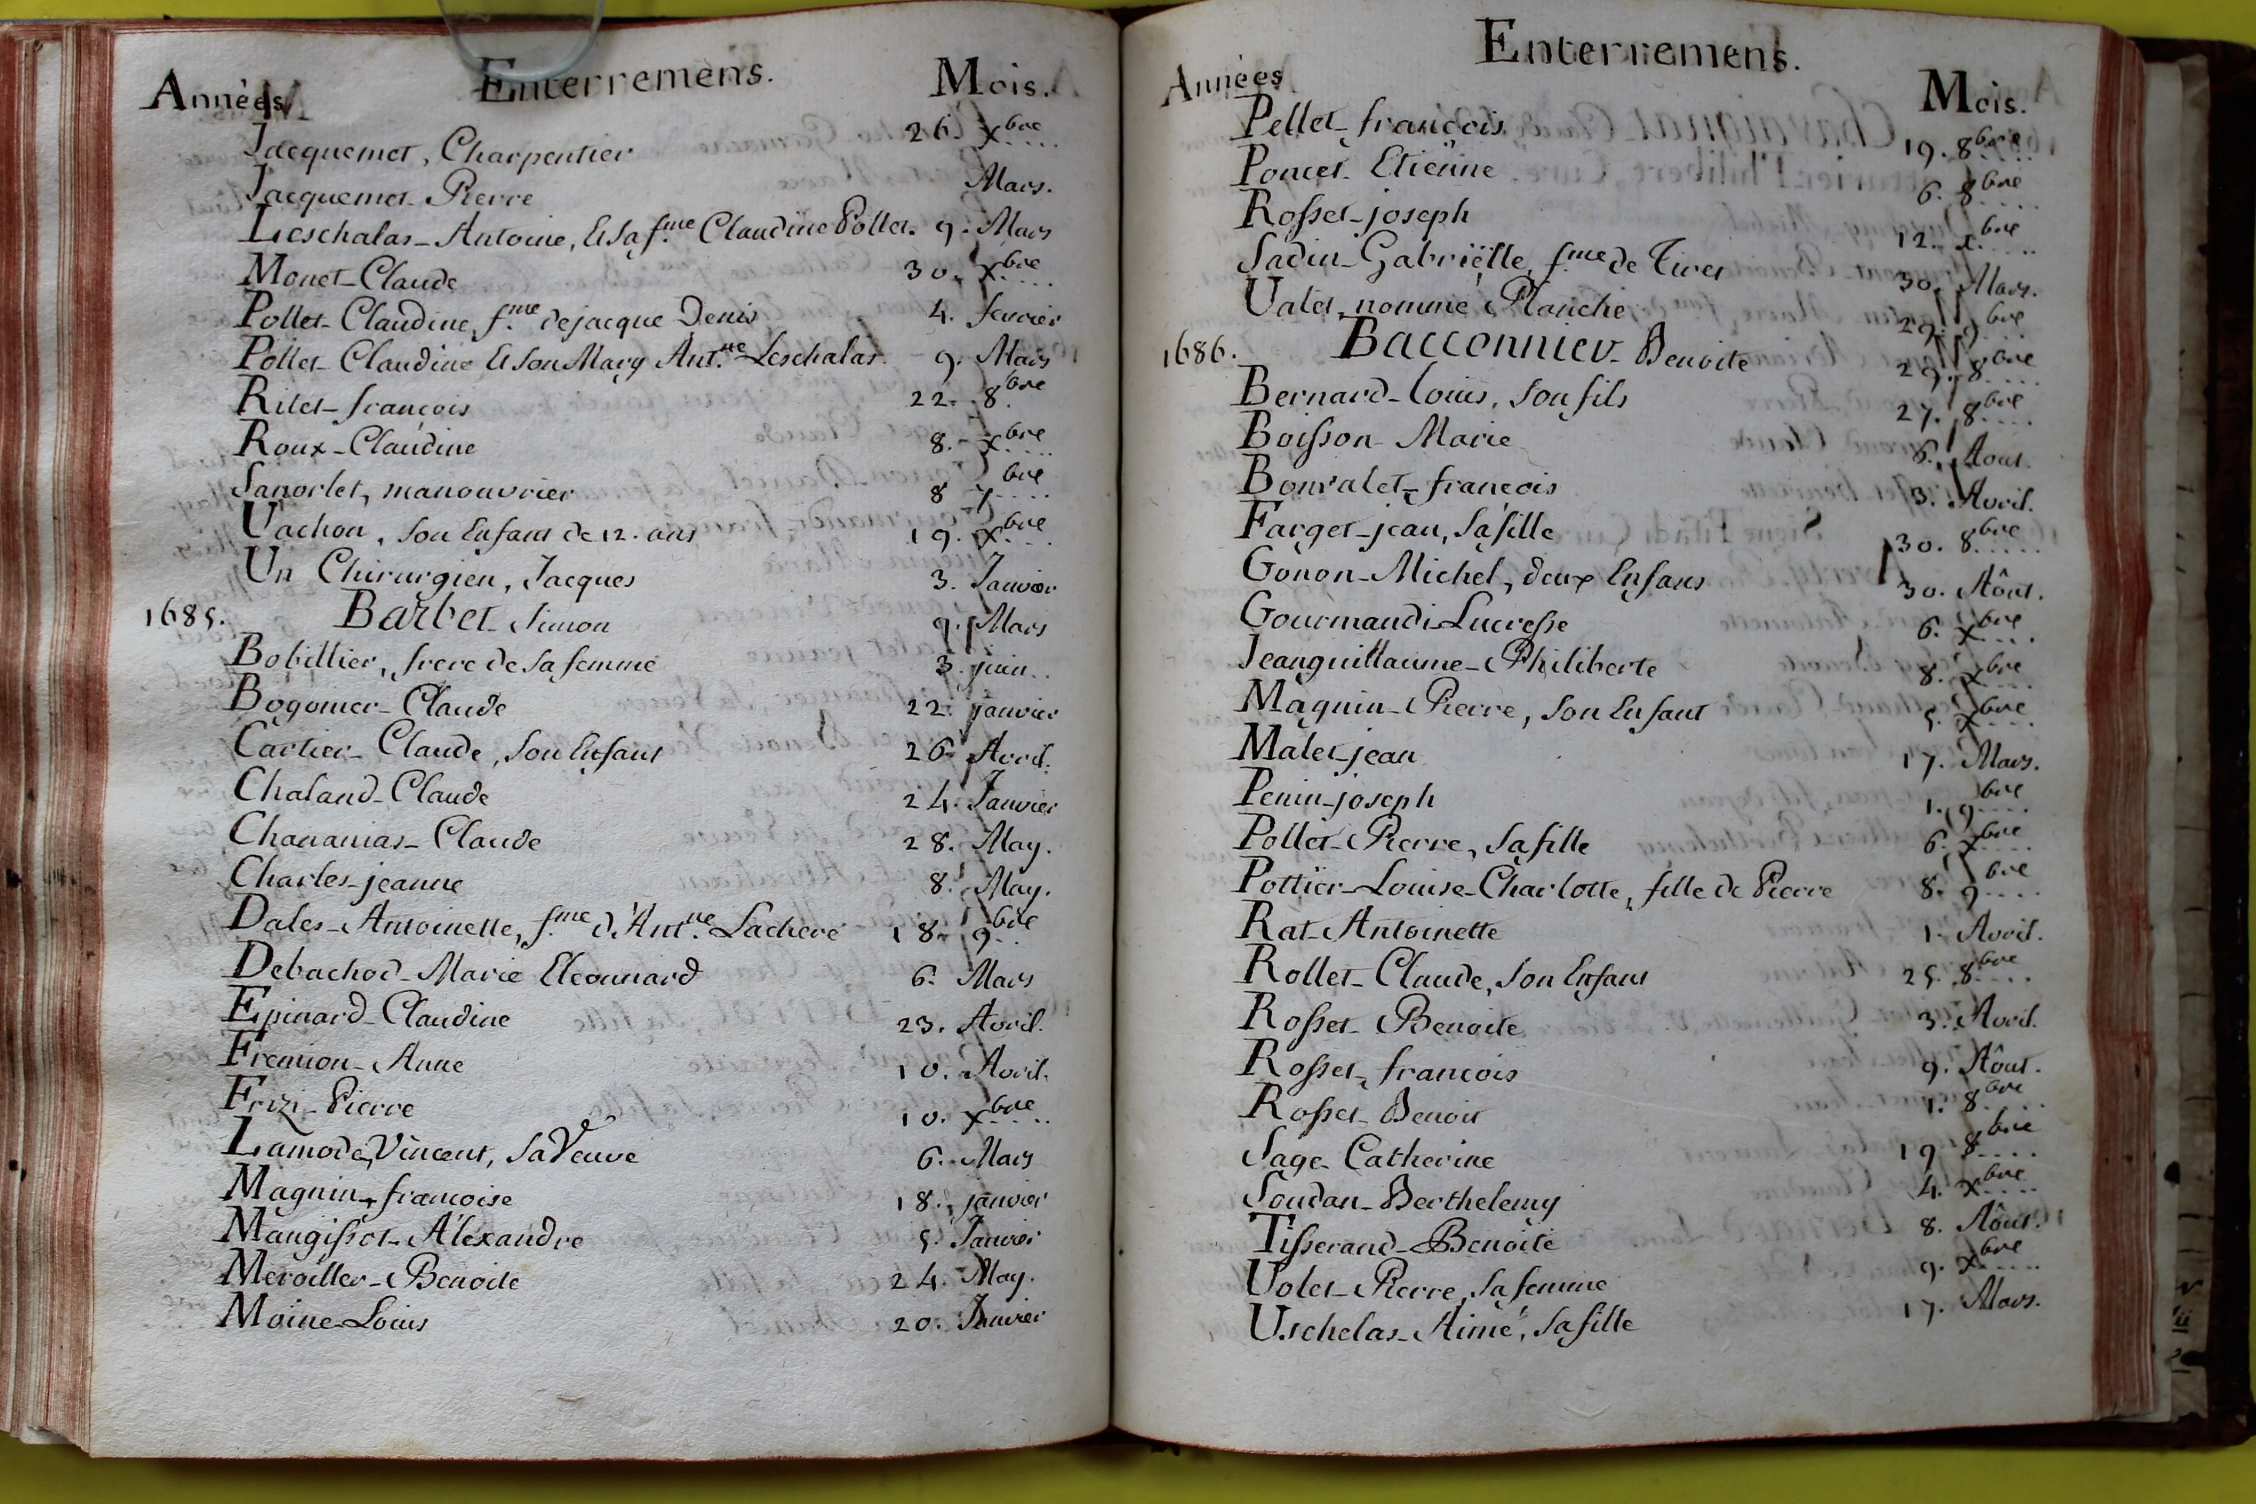 Années Enterremens. Mois.
Jacquemet, Charpentier 26. xbre....
Jacquemet Pierre Mars.
Leschalas Antoine, et sa fme Claudine Pollet. 9. Mars
Monet Claude 30. xbre....
Pollet Claudine, fme de jacque Denis 4. fevrier
Pollet Claudine et son Mary Antne Leschalas 9. Mars
Rilet françois 22. 8bre
Roux Claudine 8. xbre....
Sanorlet, manouvrier 8 7bre....
Vachon, son Enfant de 12. ans 19. xbre....
Un Chirurgien, Jacques 3. Janvier
1685. Barbet Simon 9. Mars
Bobillier, frere de sa femme 3. juin..
Bogonier Claude 22. janvier
Cartier Claude, son Enfant 26. Avril.
Chaland Claude 24. Janvier
Chananias Claude 28. May.
Charles jeanne 8. May.
Dales Antoinette, fme d'Antne Lachere 18. 9bre..
Debachod Marie Eleonnard 6. Mars
Epinard Claudine 23. Avril.
Fremion Anne 10. Avril.
Frizi Pierre 10. xbre....
Lamode Vincent, sa Veuve 6. Mars
Magnin, françoise 18. janvier
Mangissot Aléxandre 5. Janvier
Meroiller Benoite 24. May.
Moine Louis 20. Janvier
Années Enterremens. Mois.
Pellet françois 19. 8bre....
Poncet Etiënne 6. 8bre....
Rosset joseph 12. xbre....
Sadin Gabriëlle, fme de Tivet 30. Mars.
Valet nommé Planche 29. 9bre
1686. Bacconnier Benoite 29. 8bre....
Bernard Louis, son fils 27. 8bre....
Boisson Marie 6. Aout.
Bonvalet françois 3. Avril.
Farget jean, sa fille 30. 8bre....
Gonon Michel, deux Enfans 30. Aôut.
Gourmandi Lucresse 6. xbre....
Jeanguillaume Philiberte 8. xbre....
Magnin Pierre, son Enfant 5. xbre....
Malet jean 17. Mars.
Penin joseph 1. 9bre....
Pollet Pierre, sa fille 6. xbre....
Pottier Louise Charlotte, fille de Pierre 8. 9bre....
Rat Antoinette 1. Avril.
Rollet Claude, son Enfant 25. 8bre....
Rosset Benoite 3. Avril.
Rosset françois 9. Aôut.
Rosset Benoit 1. 8bre....
Sage Catherine 19 8bre....
Soudan Berthelemy 4. xbre....
Tisserand Benoite 8. Aôut.
Volet Pierre, sa femme 9. xbre....
Uschelas Aimé, sa fille 17. Mars.